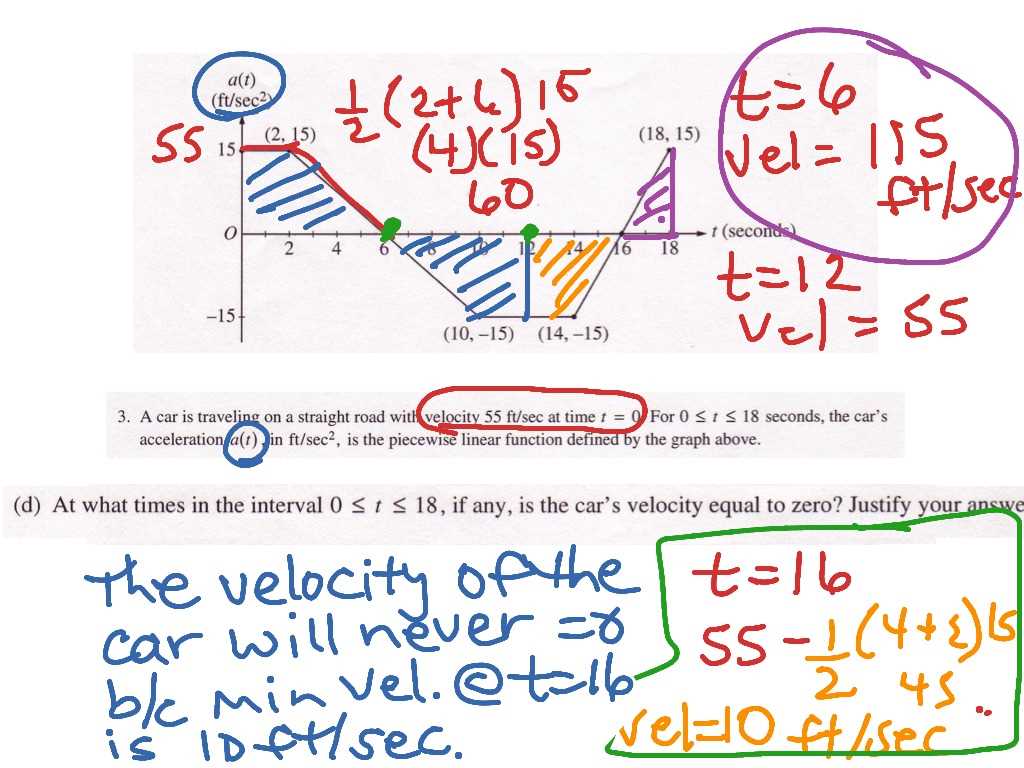 a(t)
(ft/sec²)
1/2 (2+6) 15
(4)(15)
60
55
15
(2, 15)
(18, 15)
t=6
vel = 115
ft/sec
O
2 4 6 8 10 12 14 16 18
t (seconds)
t=12
vel = 55
−15
(10, −15) (14, −15)
3. A car is traveling on a straight road with velocity 55 ft/sec at time t = 0. For 0 ≤ t ≤ 18 seconds, the car's
acceleration a(t), in ft/sec², is the piecewise linear function defined by the graph above.
(d) At what times in the interval 0 ≤ t ≤ 18, if any, is the car's velocity equal to zero? Justify your answe
The velocity of the
car will never = 0
b/c min vel. @ t=16
is 10 ft/sec.
t=16
55 − 1/2 (4+2) 15
45
vel=10 ft/sec